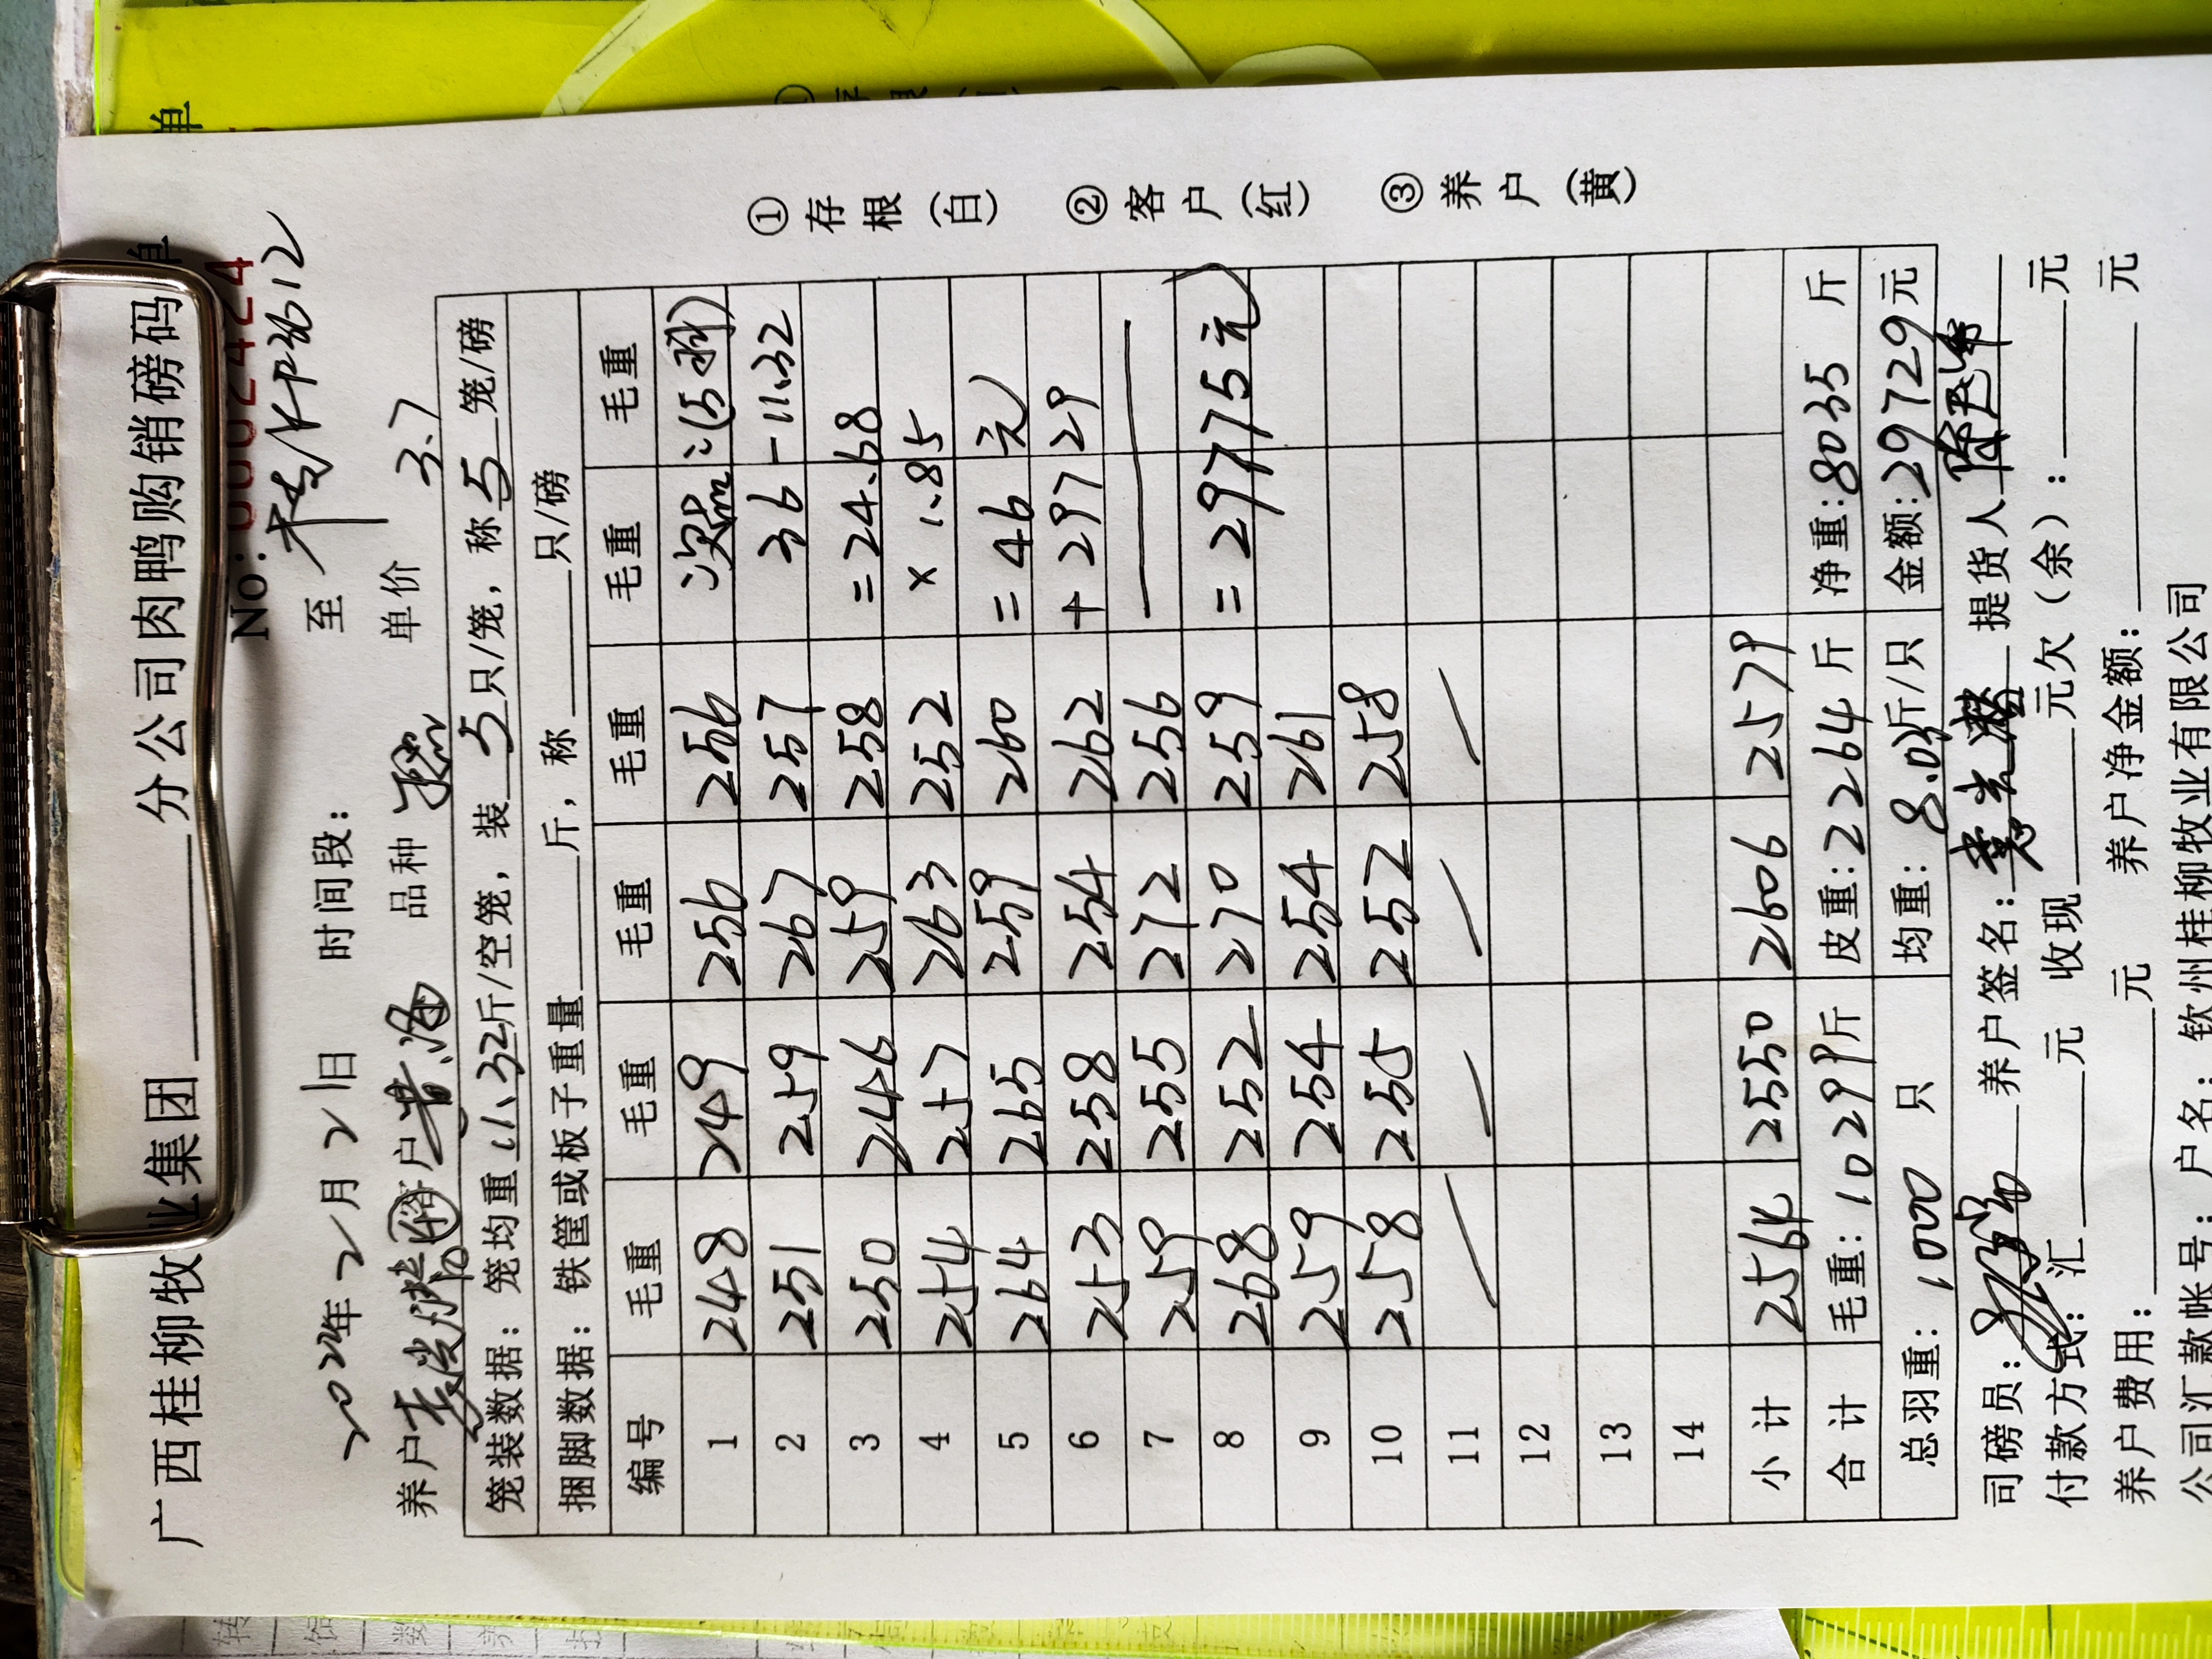 广西桂柳牧业集团 分公司肉鸭购销磅码单
No: 0002424
2024年2月21日 时间段: 至
养户 客户 品种 单价 3.7
笼装数据: 笼均重 11.32斤/空笼, 装 5 只/笼, 称 5 笼/磅
捆脚数据: 铁筐或板子重量 斤, 称 只/磅
编号 毛重 毛重 毛重 毛重 毛重 毛重
1 248 249 256 256
2 251 259 267 257 36 -11.32
3 250 246 259 258 =24.68
4 254 257 263 252 × 1.85
5 264 265 259 260 = 46 元
6 253 258 254 262 + 29729
7 259 255 272 256
8 268 252 270 259 = 29775元
9 259 254 254 261
10 258 255 252 258
11
12
13
14
小计 2564 2550 2606 2579
合计 毛重: 10299斤 皮重: 2264斤 净重: 8035 斤
总羽重: 1000 只 均重: 8.03斤/只 金额: 29729元
司磅员: 养户签名: 提货人
付款方式: 汇 元 收现 元欠(余): 元
养户费用: 元 养户净金额: 元
公司汇款帐号: 户名: 钦州桂柳牧业有限公司
①存根(白) ②客户(红) ③养户(黄)